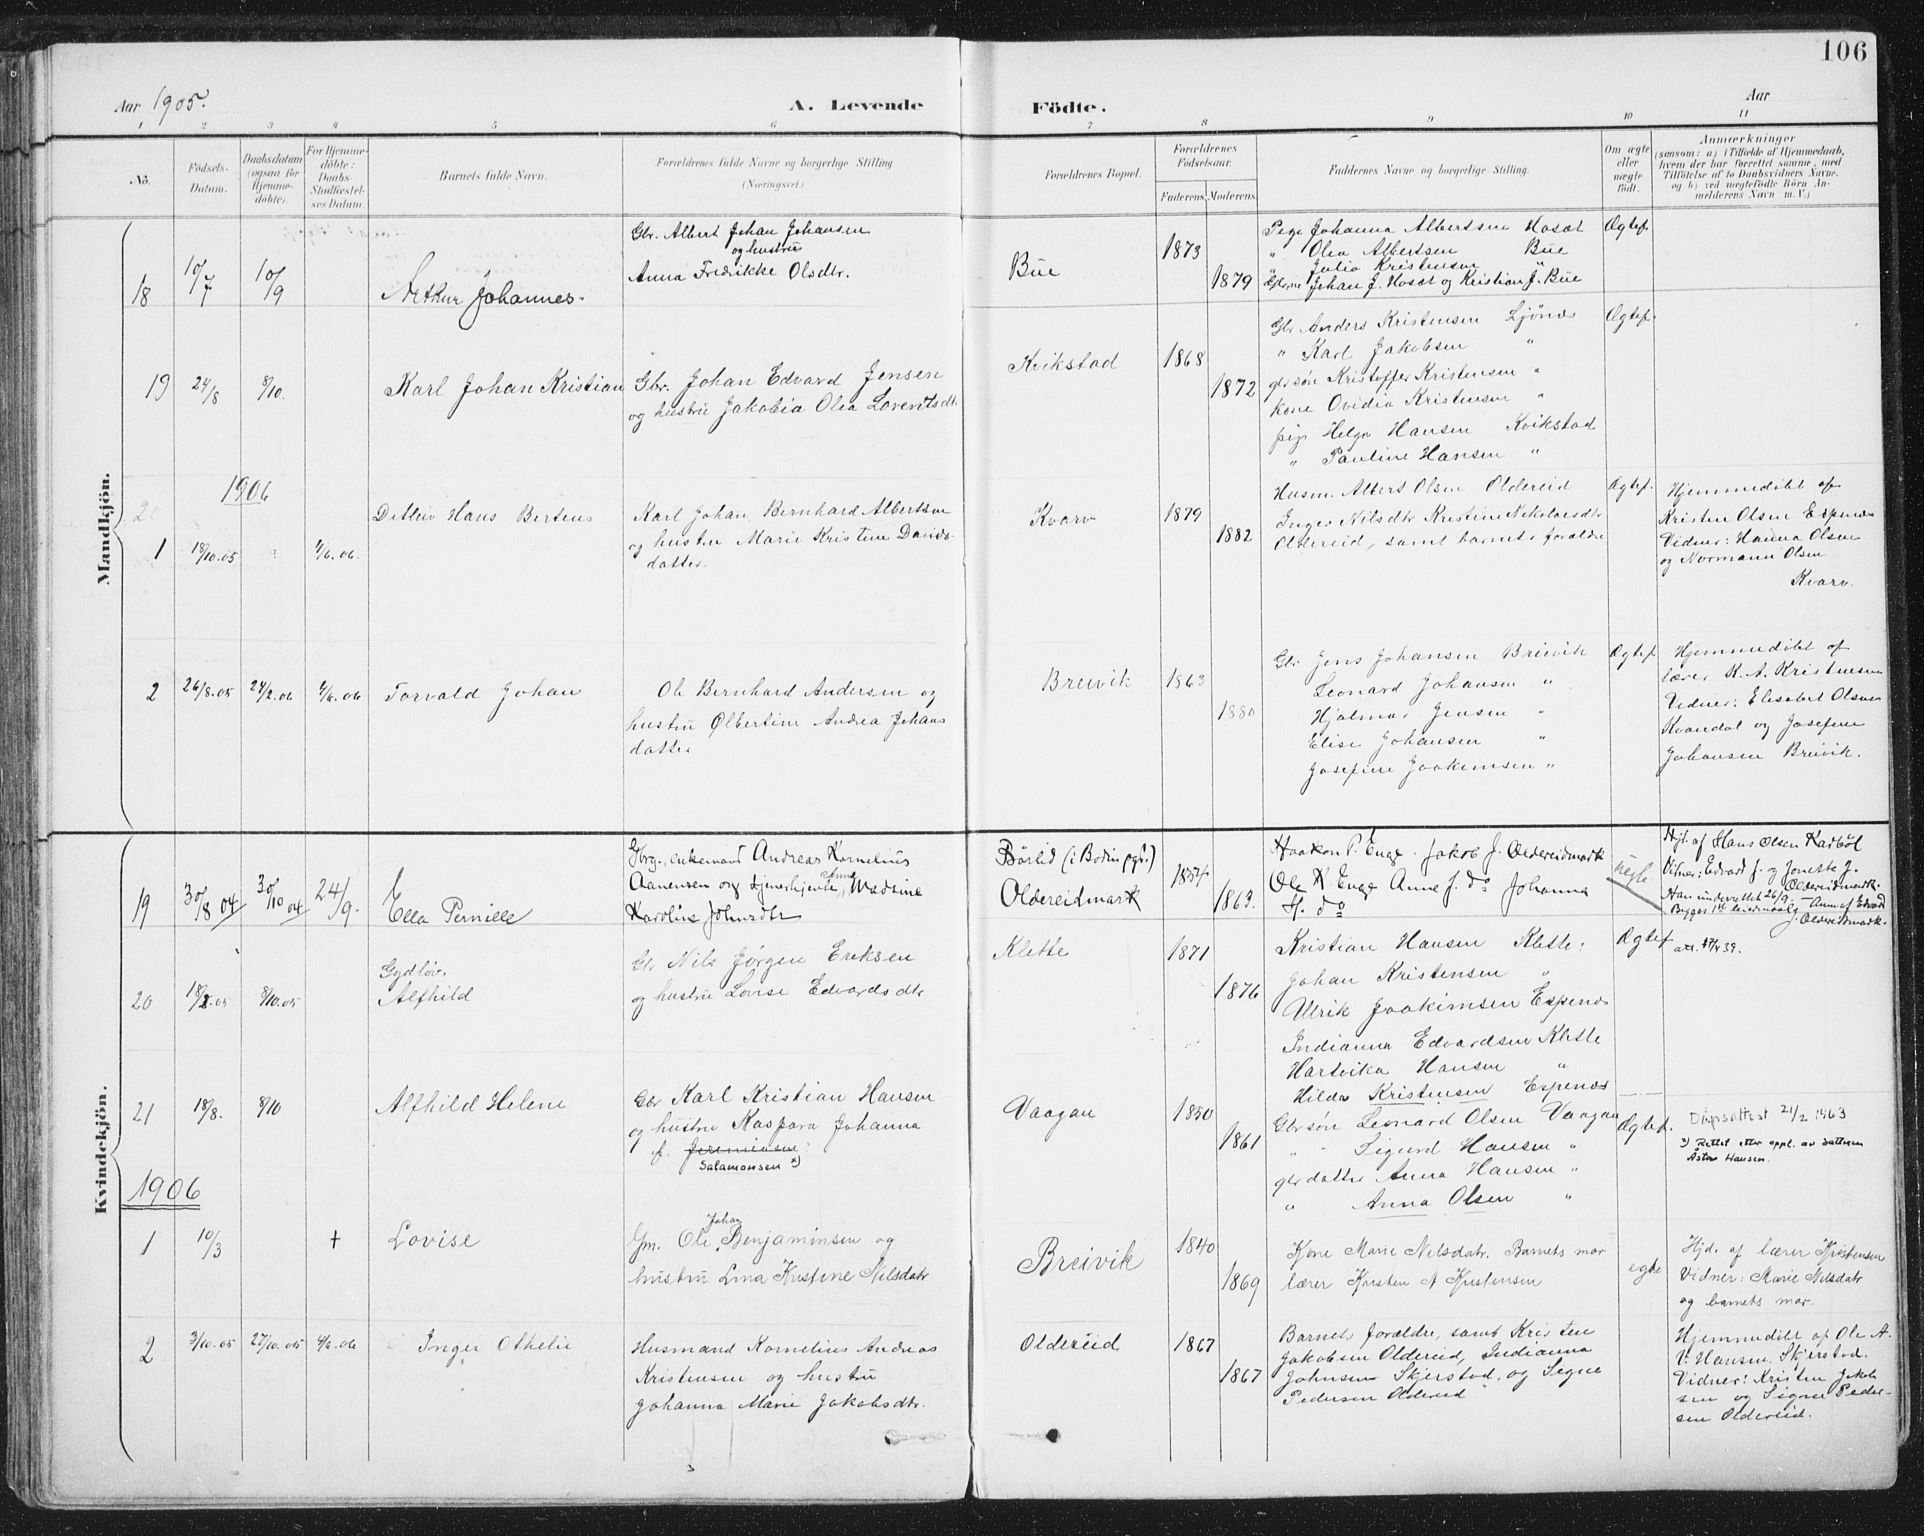 106
Aar 1905.
A. Levende Födte.
Aar
1 2 3 4 5 6 7 8 9 10 11
No.
Födsels-
Datum.
Daabsdatum
(ogsaa for
Hjemme-
döbte).
For Hjemme-
döbte:
Daabs-
Stadfæstel-
ses Datum.
Barnets fulde Navn.
Forældrenes fulde Navne og borgerlige Stilling
(Næringsvei)
Forældrenes Bopæl.
Forældrenes
Födselsaar.
Faderens Moderens
Faddernes Navne og borgerlige Stilling.
Om ægte
eller
uægte
födt.
Anmærkninger
(saasom: a) i Tilfælde af Hjemmedaab,
hvem der har forrettet samme, med
Tilföielse af to Daabsvidners Navne,
og b) ved uegtefödte Börn An-
melderens Navn m. V.)
Mandkjön.
18 10/7 10/9 Arthur Johannes.
Gbr. Albert Johan Johansen
og hustru
Anna Fredrikke Olsdtr.
Bue 1873 1879
Pige Johanna Albertsen Hosæt
" Olea Albertsen Bue
" Julia Kristensen "
Johan J. Hosæt og Kristian J. Bue
Ægtef.
19 24/8 8/10. Karl Johan Kristian
Gbr. Johan Edvard Jensen
og hustru Jakobia Olea Lorentsdtr
Kvikstad 1868 1872
Gbr Anders Kristensen Ljönes
" Karl Jakobsen "
gbrsön Kristoffer Kristensen "
Kone Ovidia Kristensen "
pige Helga Hansen Kvikstad
" Pauline Hansen "
Ægtef.
1906
1 18/10.05 4/6.06. Ditlev Hans Bertens
Karl Johan Bernhard Albertsen
og hustru Marie Kristine Davids-
datter.
Kvarv 1879 1882
Husm. Albert Olsen Oldereid
Inger Nilsdtr Kristine Nikolaisdtr
Oldereid, samt barnets forældre
Ægtef.
Hjemmedöbt af
Kristen Olsen Espenæs
Vidner: Hanna Olsen
og Normann Olsen
Kvarv.
2 26/8.05 24/2.06 4/6.06 Torvald Johan
Ole Bernhard Andersen og
hustru Olbertine Andrea Johans
datter
Breivik 1863 1880
Gbr Jens Johansen Breivik
Leonard Johansen "
Hjalmar Jensen "
Elise Johansen "
Josefine Joakimsen "
Ægtef
Hjemmedöbt af
lærer K. A. Kristensen
Vidner: Elisabet Olsen
Kvandal og Josefine
Johansen Breivik.
Kvindekjön.
19 30/8 04 30/10 04 24/9. Ella Pernille
Gbrg., enkemand Andreas Kornelius
Aanensen og tjenerhjente, Anna Madsine
Karoline Johnsdtr
Börlid (i Bodin pgt.)
Oldereidmark
1854 1863.
Haakon P. Enge. Jakob J. Oldereidmark
Ole K. Enge Anne J. do Johanna
H. do
uegte
Hjd. af Hans Olsen Karböl
Vidner: Edvard J. og Jonette J.
Oldereidmark.
Han underrettet 26/9. – Anm. af Edvard
Begges 1ste leiermaal J. Oldereidmark.
20 18/8.05 8/10.05 Gydlöv.
Alfhild
Gbr Nils Jørgen Eriksen
og hustru Lovise Edvardsdtr
Klette 1871 1876
Kristian Hansen Klette.
Johan Kristensen "
Ulrik Joakimsen Espenæs
Indianna Edvardsen Klette
Hartvika Hansen "
Hilda Kristensen Espenæs
Ægtef
att. 17/4 39.
21 18/8. 8/10 Alfhild Helene
Gbr Karl Kristian Hansen
og hustru Kaspara Johanna
f. Jeremiasen
Salamonsen x)
Vaagan 1850 1861
Gbrsön Leonard Olsen Vaagan
" " Sigurd Hansen "
gbrdatter Anna Hansen "
" Anna Olsen "
Ægtef.
Dåpsattest 21/2 1963
x) Rettet etter oppl. av datteren
Åsta Hansen.
1906
1 10/3 + Lovise
Gm. Ole Johan Benjaminsen og
hustru Lina Kristine Nilsdatr
Breivik 1840 1869
Kone Marie Nilsdatr. Barnets mor
lærer Karsten A Kristensen
egte
Hjd. af lærer Kristensen
Vidner: Marie Nilsdatr
og barnets mor.
2 3/10.05 27/10.05 4/6.06 Inger Othelie
Husmand Kornelius Andreas
Kristensen og hustru
Johanna Marie Jakobsdtr.
Oldereid 1867 1867
Barnets forældre, samt Kristen
Jakobsen Oldereid, Indianna
Johnsen Skjerstad, og Signe
Pedersen Oldereid
Hjemmedöbt af Ole A.
V. Hansen, Skjerstad.
Vidner: Kristen Jakob
sen og Signe Peder-
sen Oldereid.